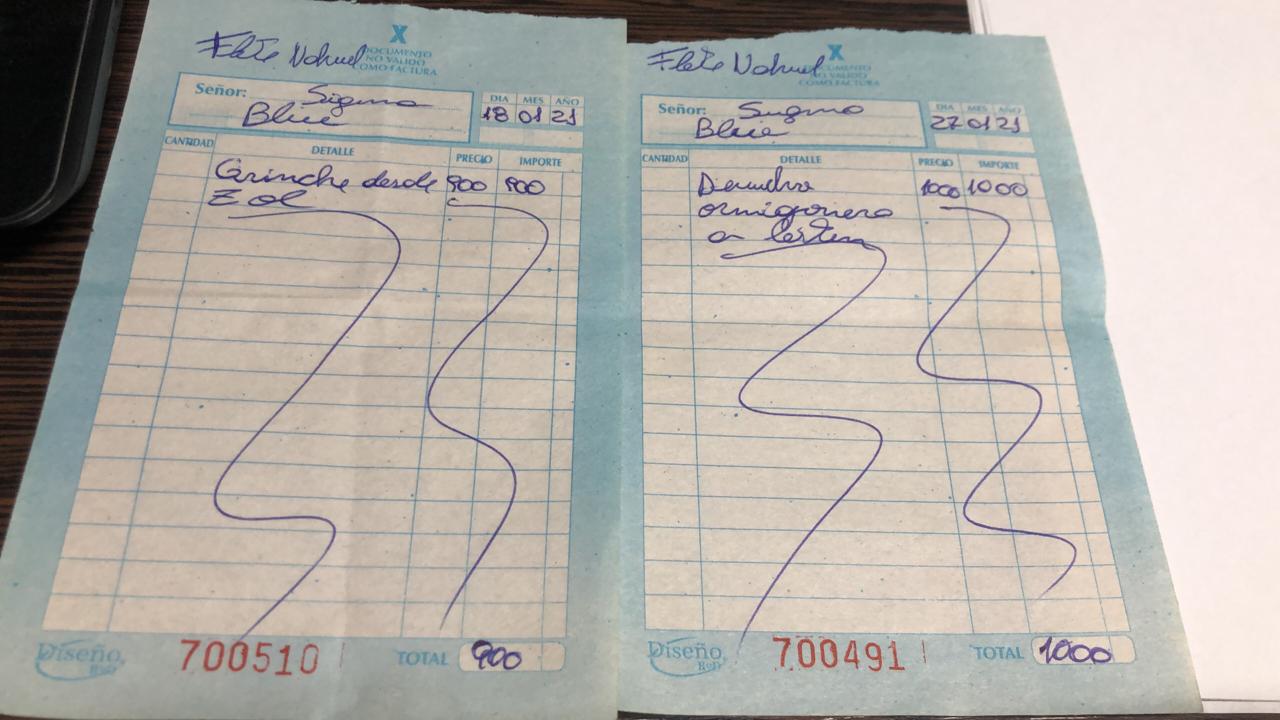 Flete Nahuel
X
DOCUMENTO
NO VALIDO
COMO FACTURA
Señor: Sigma
Blue
DIA MES AÑO
18 01 21
CANTIDAD DETALLE PRECIO IMPORTE
desde 900 900
Zol
Diseño
700510
TOTAL 900
Flete Nahuel
X
DOCUMENTO
NO VALIDO
COMO FACTURA
Señor: Sugma
Blue
DIA MES AÑO
27 01 21
CANTIDAD DETALLE PRECIO IMPORTE
1000 1000
ormigonera
a
Diseño
700491
TOTAL 1000